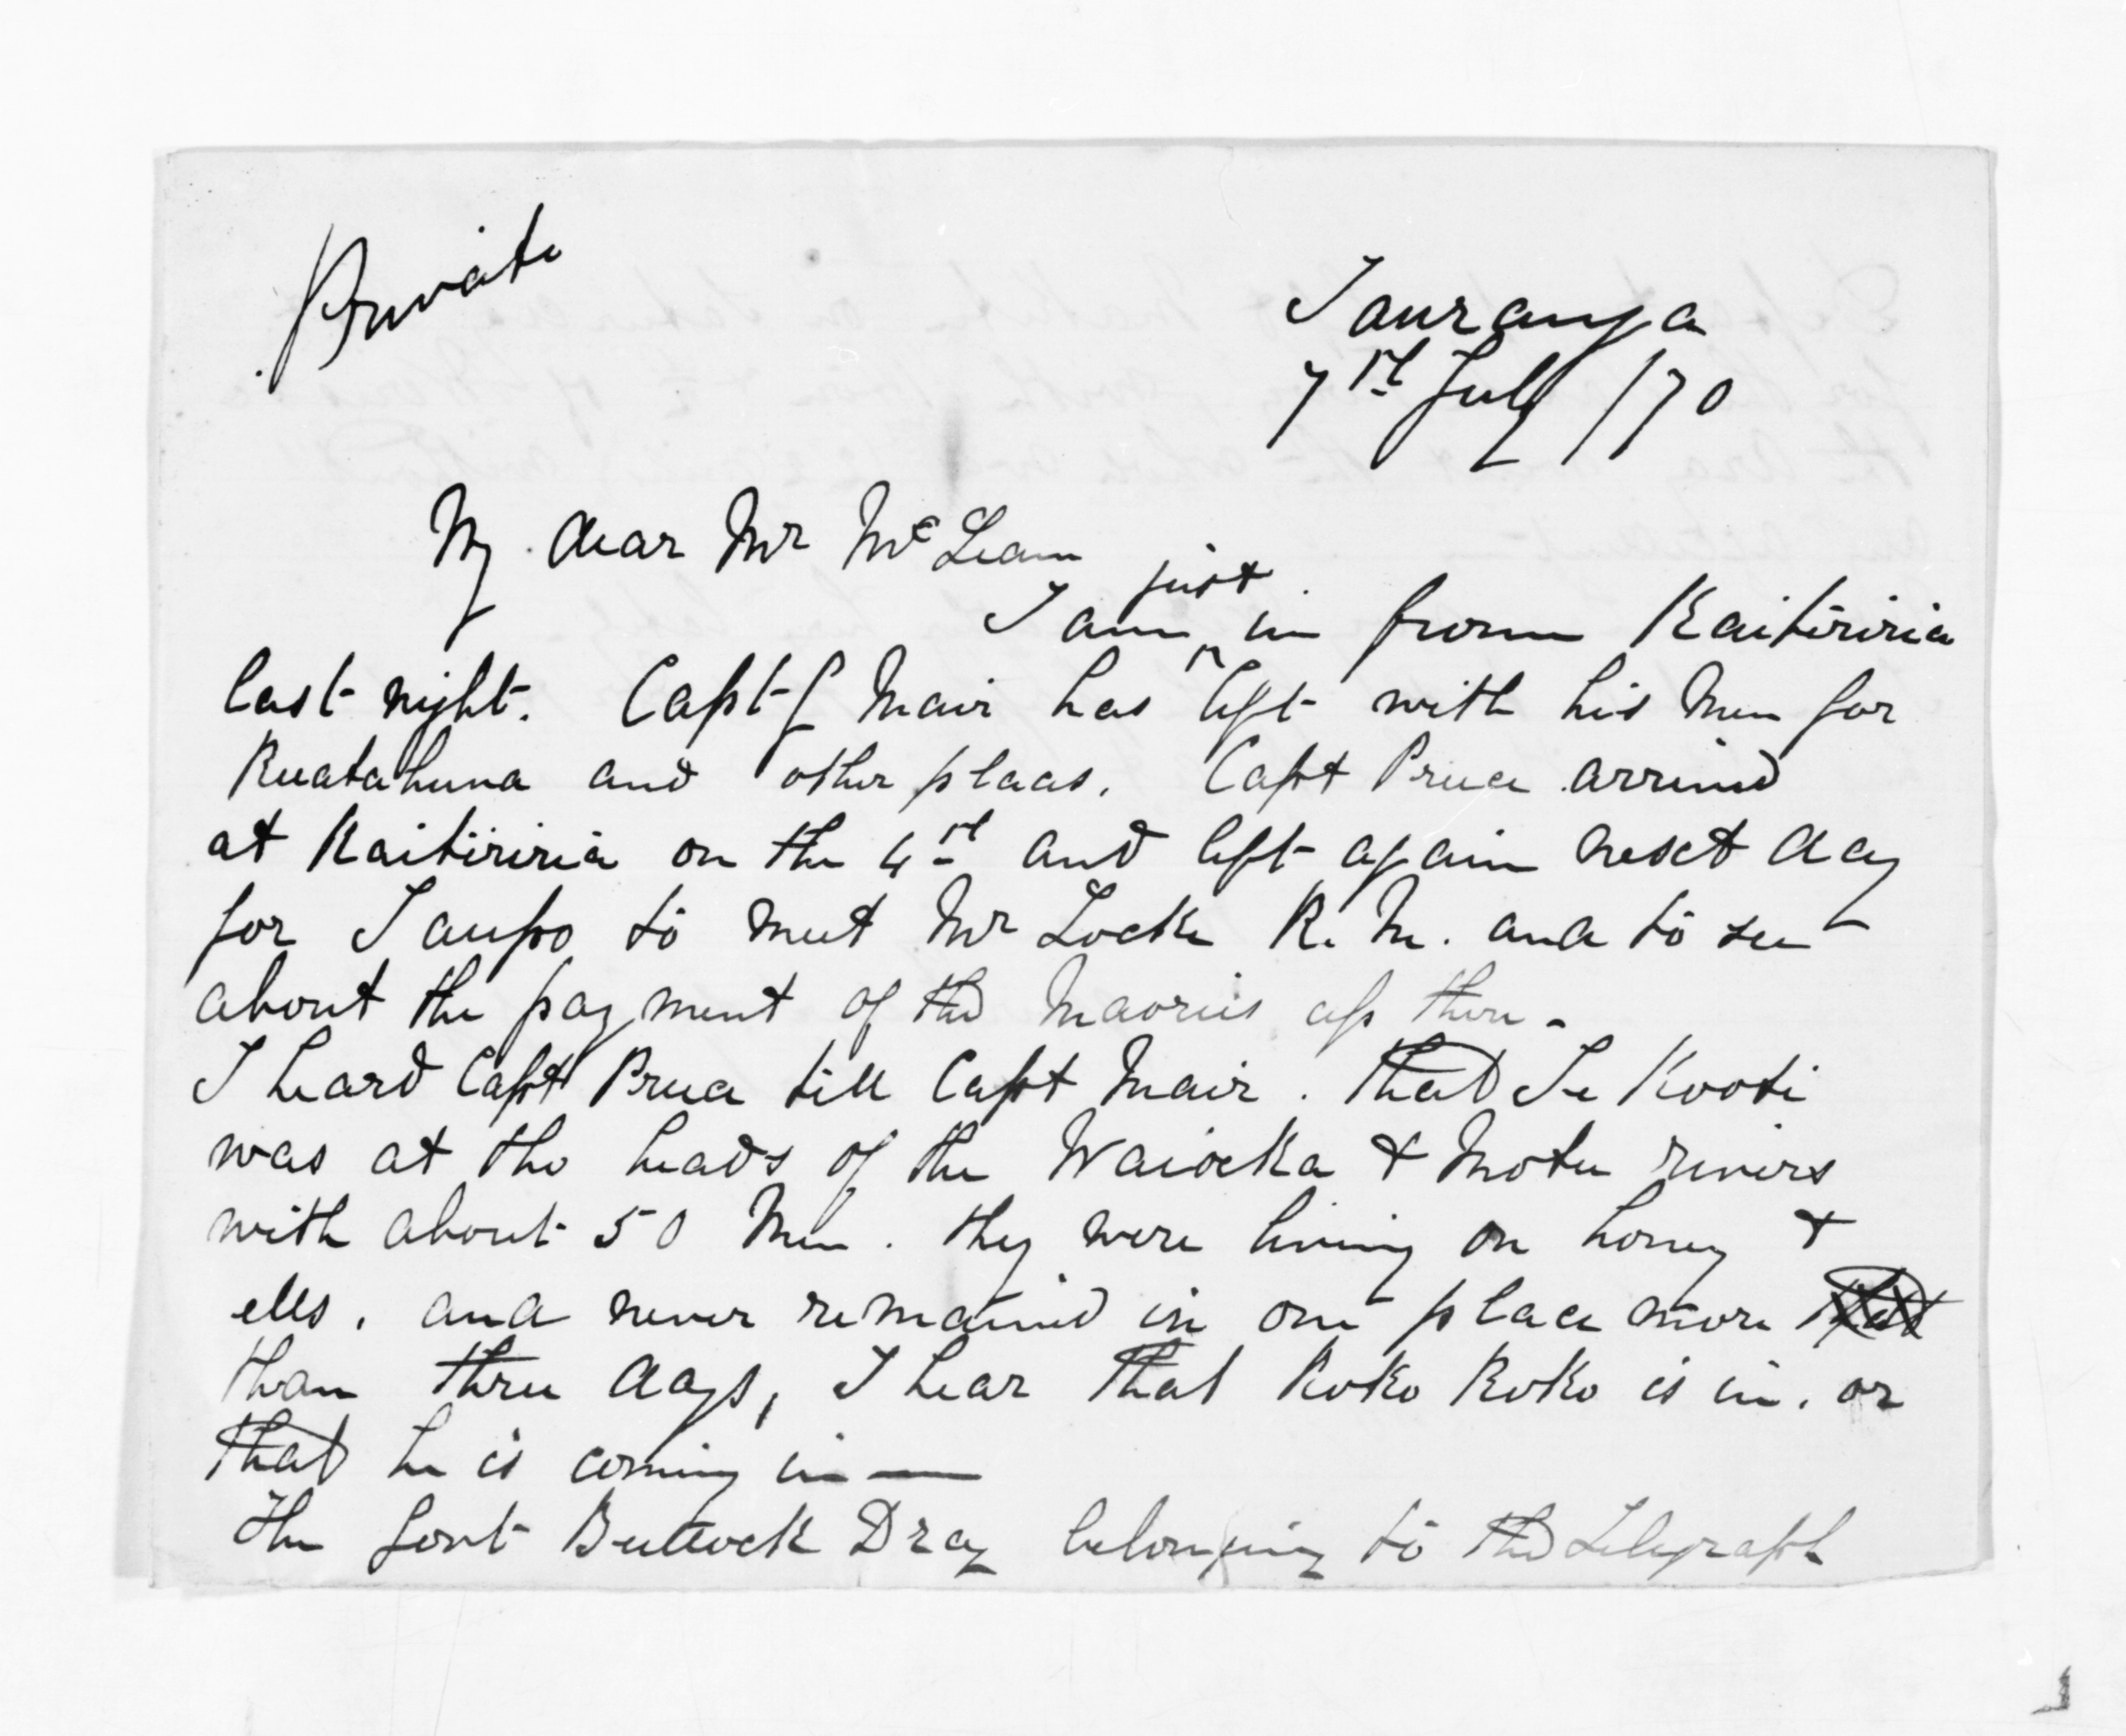 Private
Tauranga
7th July /70
My dear Mr McLean
I am just in from Kaitiriria
last night. Capt G Mair has left with his men for
Ruatahuna and other places. Capt Preece arrived
at Kaitiriria on the 4th and left again next day
for Taupo to meet Mr Locke R. M. and to see
about the payment of the Maories up there -
I heard Capt Preece tell Capt Mair. that Te Kooti
was at the heads of the Waioeka & Motu rivers
with about 50 men. they were living on honey &
ells. and never remained in one place more
than three days, I hear that Roko Roko is in. or
that he is coming in —
The Govt Bullock Dray belonging to the Telegraph